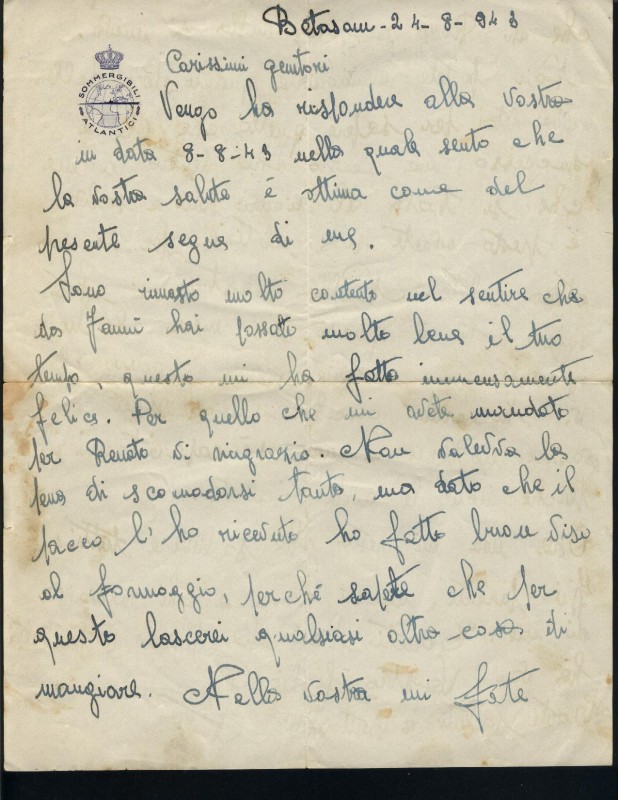 Betasom - 24-8-943
SOMMERGIBILI
ATLANTICI
Carissimi genitori
Vengo ha rispondere alla vostra
in data 8-8-43 nella quale sento che
la vostra salute é ottima come del
pesente segue di me.
Sono rimasto molto contento nel sentire che
da Fanni hai passato molto bene il tuo
tempo, questo mi ha fatto immensamente
felice. Per quello che mi avete mandato
per Renato vi ringrazio. Non valevva la
pena di scomodarsi tanto, ma dato che il
pacco l'ho ricevuto ho fatto buon viso
al formaggio, perché sapete che per
questo lascerei qualsiasi altra cosa di
mangiare. Nella vostra mi fate